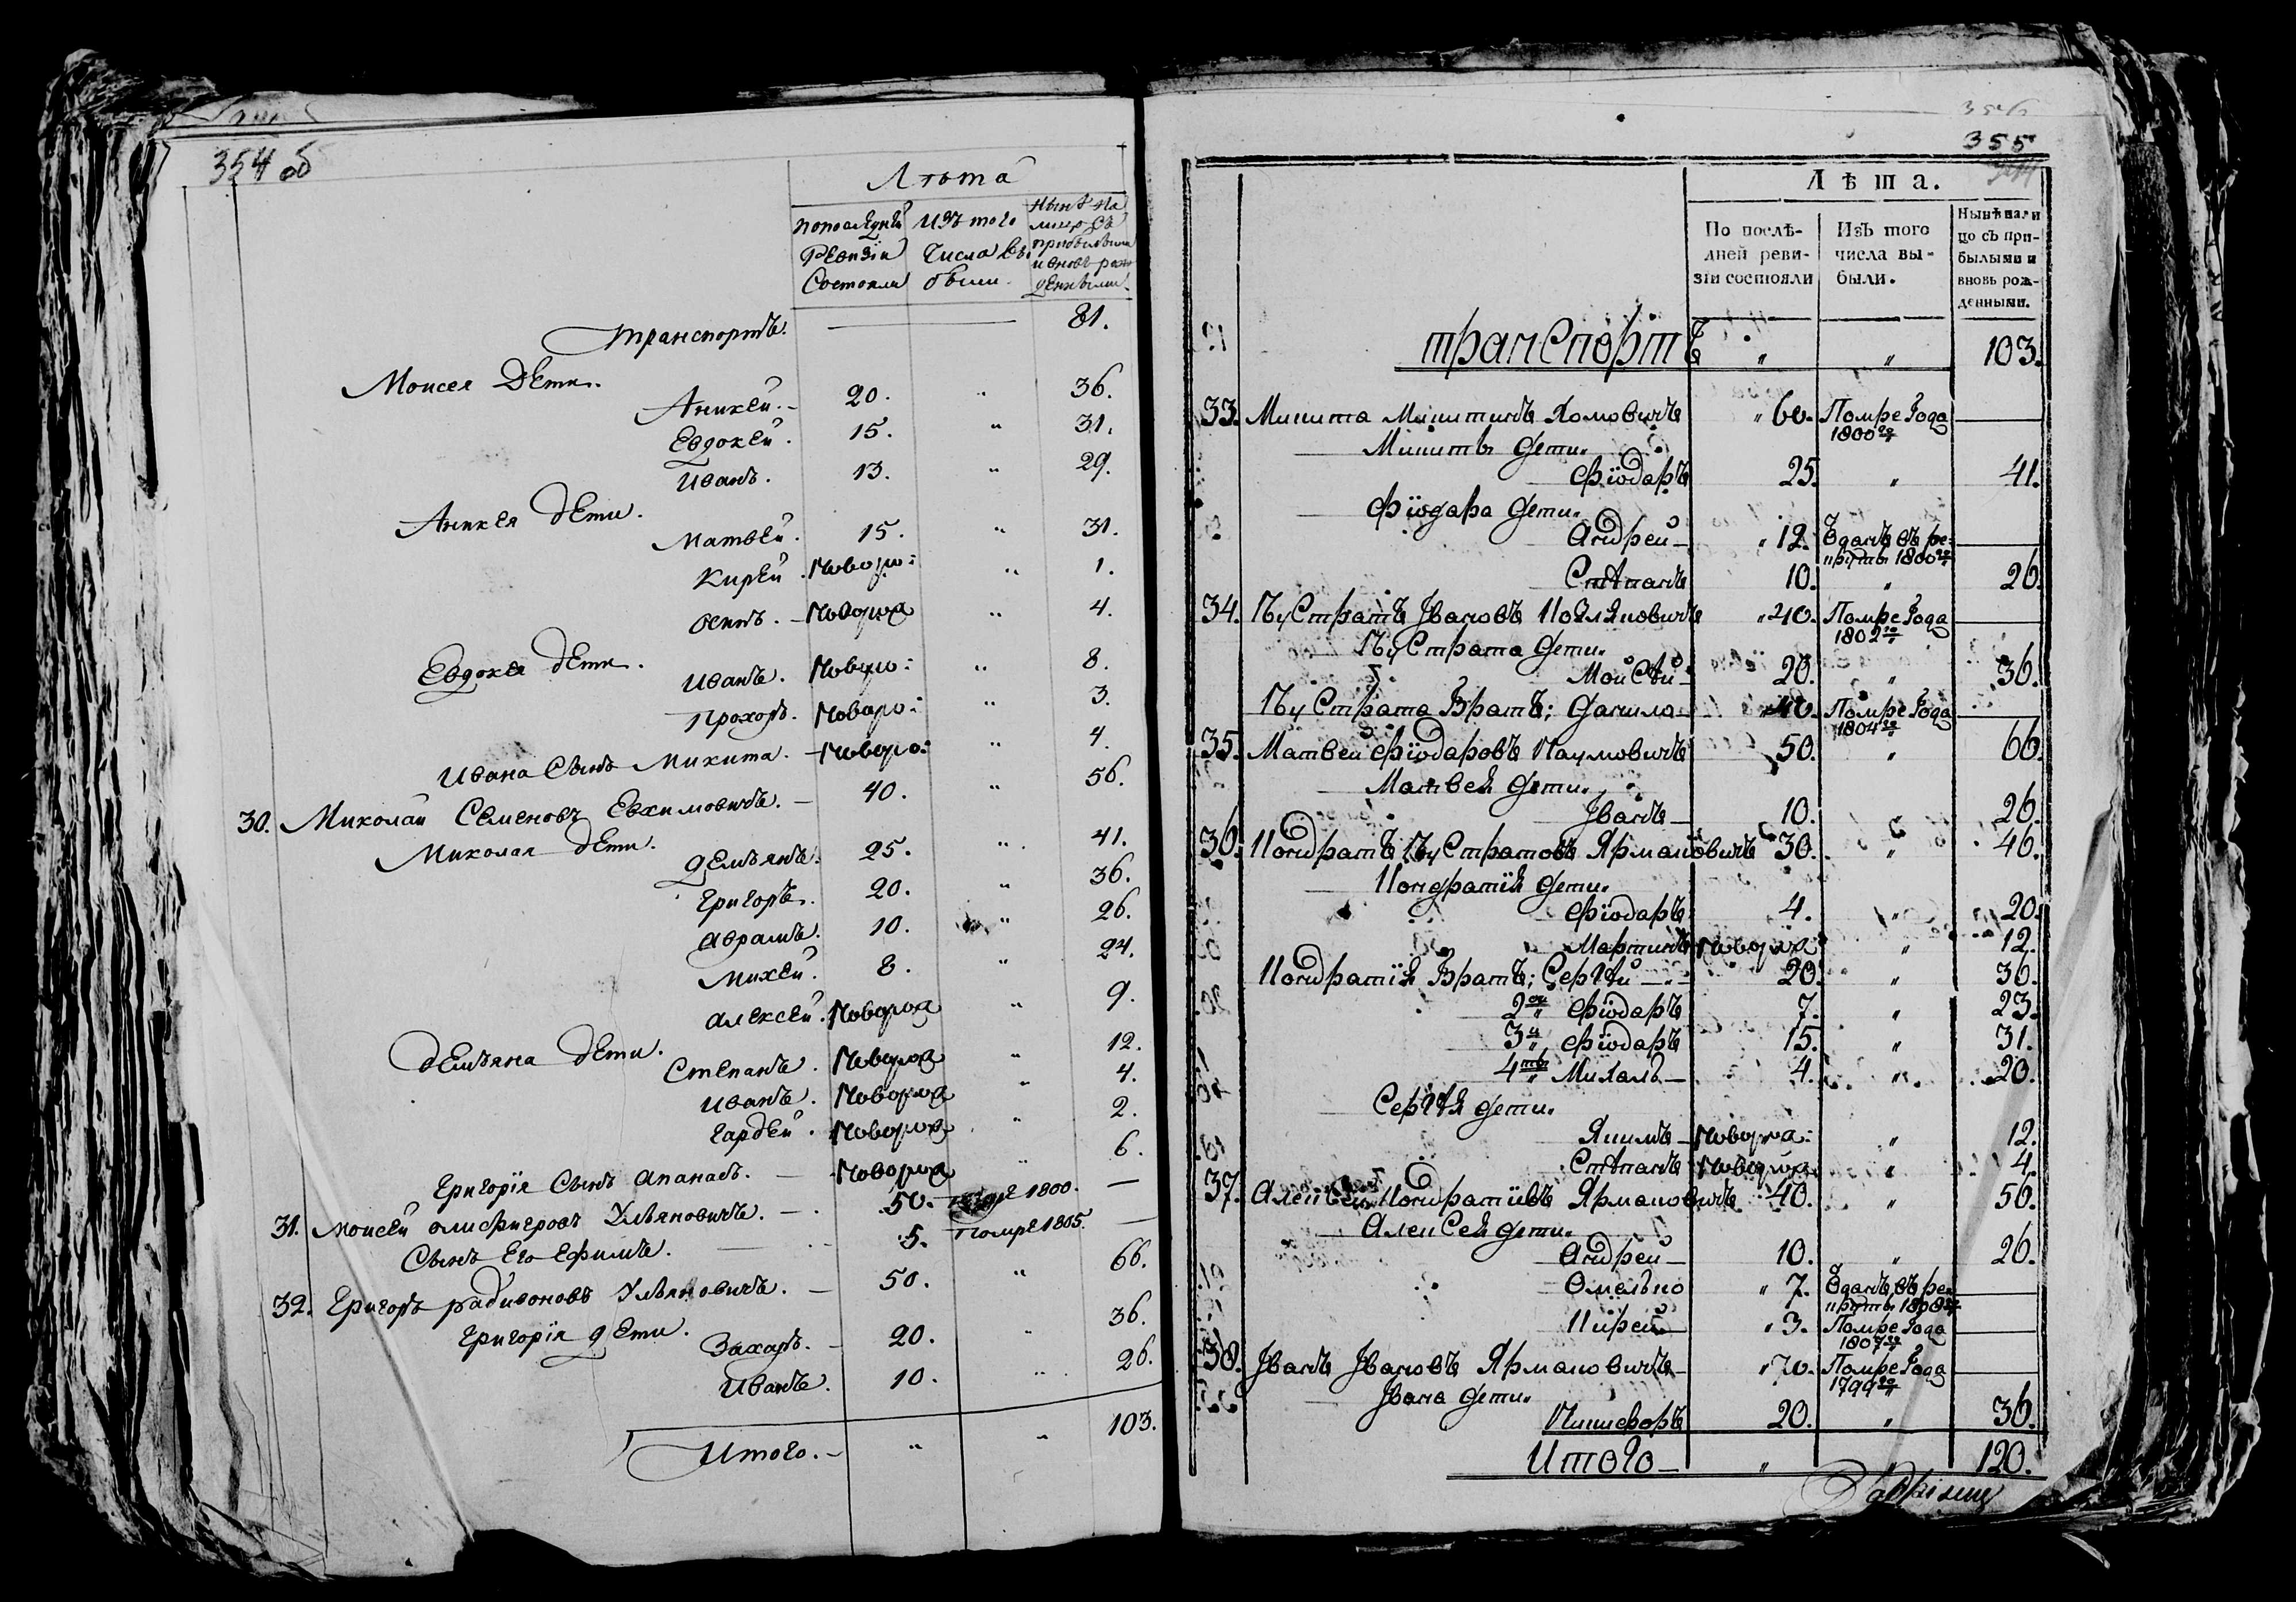 354 об
Лѣта
попоследнѣй
Ревизiи
Состояли
Изъ того
Числа вы
были.
Нынѣ на
лицо съ
прибылыми
и вновь рож
денными.
Транспортъ. 81.
Моисея дети.
Аникей. 20. " 36.
Евдокей. 15. " 31.
Иванъ. 13. " 29.
Аникея дети.
Матвей. 15. " 31.
Кирей. Новоро: " 1.
Осипъ. Новорож " 4.
Евдокея дети.
Иванъ. Новоро: " 8.
Прохоръ. Новоро: " 3.
Ивана Сынъ Микита. Новоро: " 4.
30. Миколай Семеновъ Евхимовичъ. 40. " 56.
Миколая дети.
Демьянъ. 25. " 41.
Григоръ. 20. " 36.
Аврамъ. 10. " 26.
Михей. 8. " 24.
Алексей. Новорож " 9.
Демьяна дети.
Степанъ. Новорож " 12.
Иванъ. Новорож " 4.
Гардей. Новорож " 2.
Григорiя Сынъ Апанасъ. Новорож " 6.
31. Моисей Ульяновичъ. 50. 1800. —
Сынъ Его Ефимъ. 5. Помре 1805. —
32. Григоръ радивоновъ Ульяновичъ. 50. " 66.
Григорiя дети.
Захаръ. 20. " 36.
Иванъ. 10. " 26.
Итого. " " 103.
355
Лѣта.
По послѣ-
дней реви-
зiи состояли
Изъ того
числа вы-
были.
Нынѣ нали
цо съ при-
былыми и
вновь рож-
денными.
транспортъ " " 103.
33. Микита Микитинъ Хомовичъ " 60. Помре Года
1800го
Микиты дети.
Фiодаръ 25. " 41.
Фiодара дети.
Андрей " 12. Вданъ въ ре-
круты 1800го
Стѣпанъ 10. " 26.
34. Кустратъ Ивановъ " 40. Помре Года
1802го
Кустрата дети.
Мойсѣй 20. " 36.
Кустрата Братъ; Данило 40. Помре Года
1804го
35. Матвей Фiодаровъ Наумовичъ 50. " 66.
Матвея дети.
Иванъ 10. " 26.
36. Кондратъ Кустратовъ Ярмаковичъ 30. " 46.
Кондратiя дети.
Фiодаръ 4. " 20.
Мартинъ Новорож " 12.
Кондратiя Братъ; Сергѣй 20. " 36.
2ой Фiодаръ 7. " 23.
3й Фiодаръ 15. " 31.
4ты Михалъ 4. " 20.
Сергѣя дети.
Якимъ Новорож: " 12.
Стѣпанъ Новорож " 4.
37. Алексей Кондратiевъ Ярмаковичъ 40. " 56.
Алексея дети.
Андрей 10. " 26.
Омелько " 7. Вданъ въ ре-
круты 1808го
Кирей " 3. Помре Года
1807го
38. Иванъ Ивановъ Ярмаковичъ " 70. Помре Года
1799го
Ивана дети.
Никифоръ 20. " 36.
Итого " " 120.